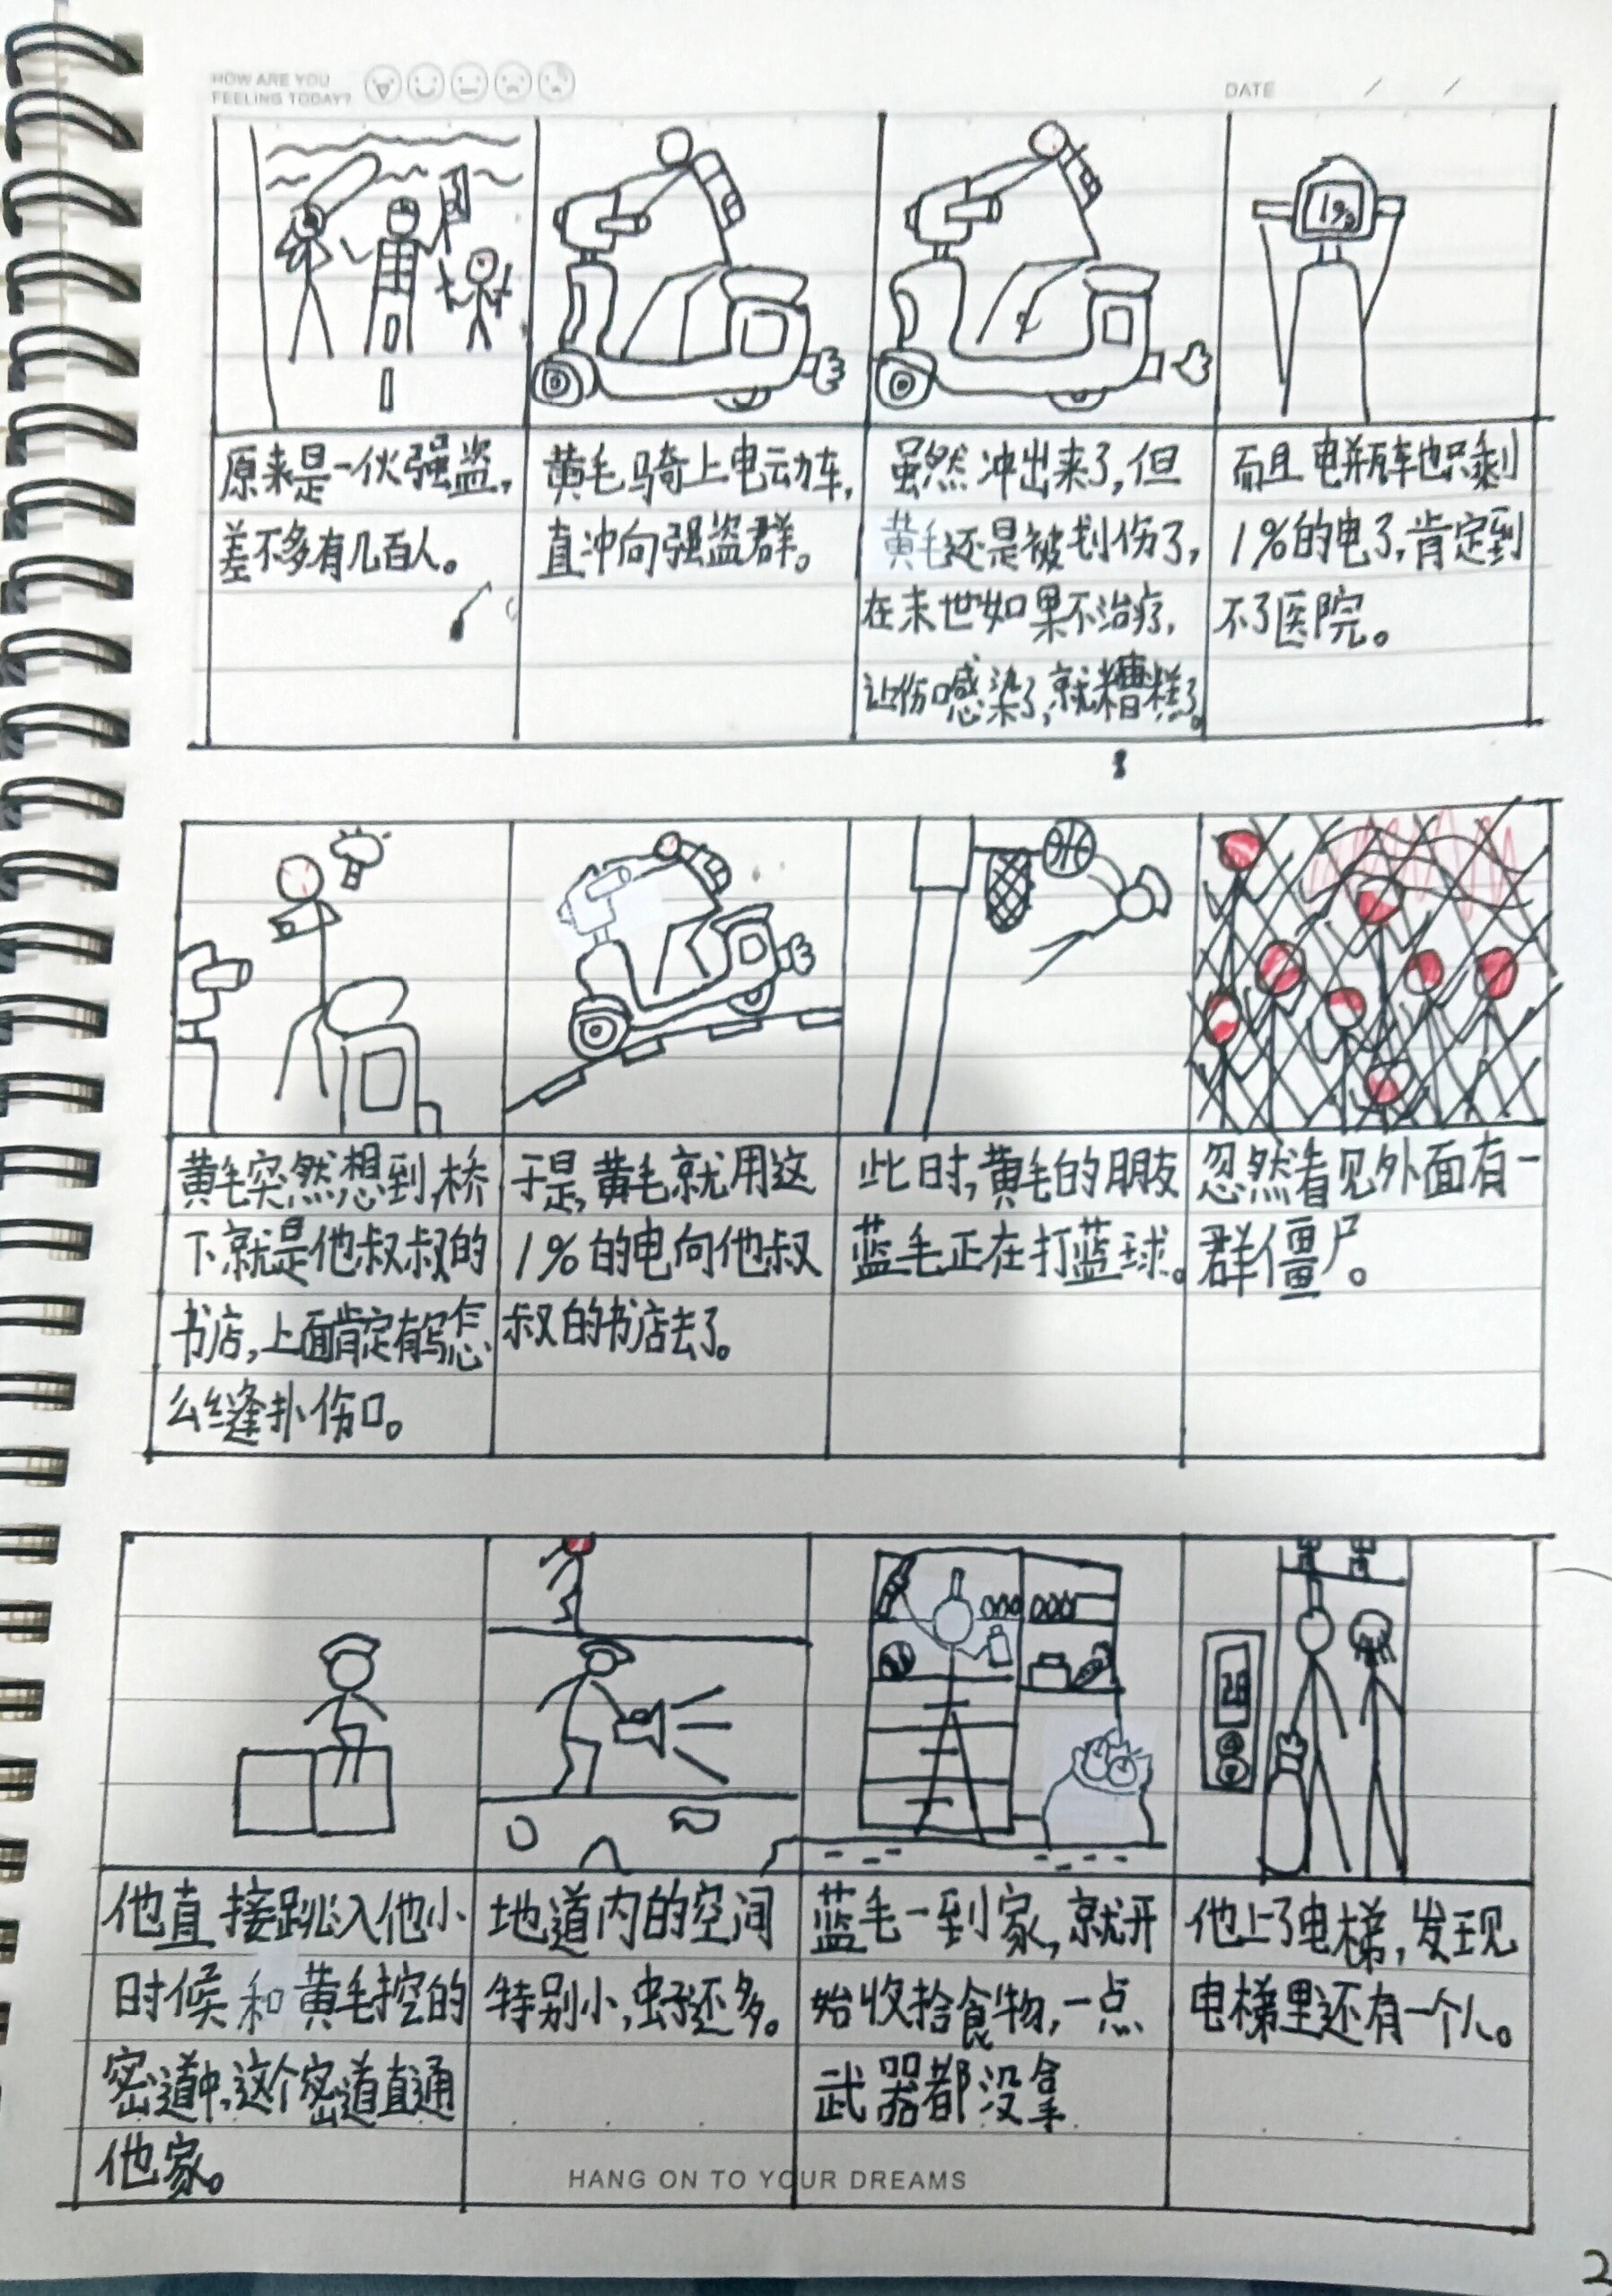 HOW ARE YOU
FEELING TODAY?
DATE / /
1%
原来是一伙强盗，
差不多有几百人。
黄毛骑上电动车，
直冲向强盗群。
虽然冲出来了，但
黄毛还是被划伤了，
在末世如果不治疗，
让伤口感染了，就糟糕了。
而且电瓶车也只剩
1%的电了，肯定到
不了医院。
黄毛突然想到，桥
下就是他叔叔的
书店，上面肯定有写怎
么缝扑伤口。
于是，黄毛就用这
1%的电向他叔
叔的书店去了。
此时，黄毛的朋友
蓝毛正在打蓝球。
忽然看见外面有一
群僵尸。
28
他直接跳入他小
时候和黄毛挖的
密道中，这个密道直通
他家。
地道内的空间
特别小，虫子还多。
蓝毛一到家，就开
始收拾食物，一点
武器都没拿
他上了电梯，发现
电梯里还有一个人。
HANG ON TO YOUR DREAMS
2